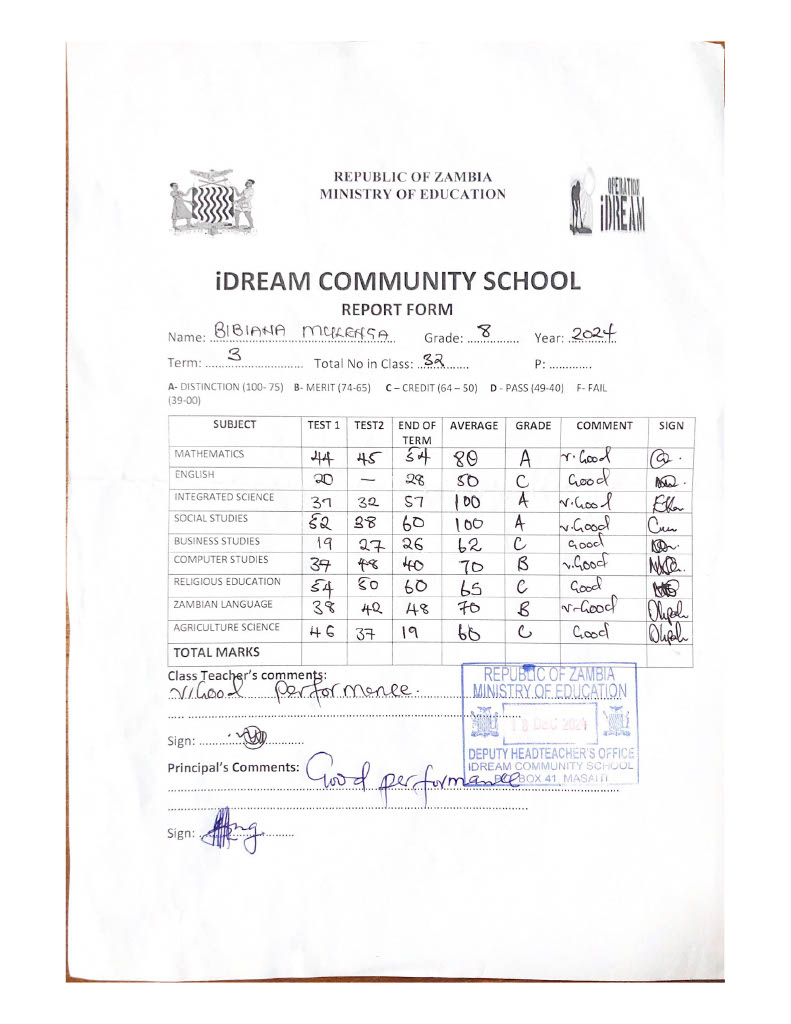 REPUBLIC OF ZAMBIA
MINISTRY OF EDUCATION
OPERATION
iDREAM
iDREAM COMMUNITY SCHOOL
REPORT FORM
Name: BIBIANA MULENGA Grade: 8 Year: 2024
Term: 3 Total No in Class: 32 P: .............
A- DISTINCTION (100- 75) B- MERIT (74-65) C – CREDIT (64 – 50) D - PASS (49-40) F- FAIL
(39-00)
SUBJECT TEST 1 TEST2 END OF TERM AVERAGE GRADE COMMENT SIGN
MATHEMATICS 44 45 54 80 A v. Good
ENGLISH 20 — 28 50 C Good
INTEGRATED SCIENCE 37 32 57 100 A v. Good
SOCIAL STUDIES 52 38 60 100 A v. Good
BUSINESS STUDIES 19 27 26 62 C Good
COMPUTER STUDIES 37 48 40 70 B v. Good
RELIGIOUS EDUCATION 54 50 60 65 C Good
ZAMBIAN LANGUAGE 38 42 48 70 B v. Good
AGRICULTURE SCIENCE 46 37 19 60 C Good
TOTAL MARKS
Class Teacher's comments:
V. Good performence.
Sign:
Principal's Comments: Good performance
Sign:
REPUBLIC OF ZAMBIA
MINISTRY OF EDUCATION
18 DEC 2024
DEPUTY HEADTEACHER'S OFFICE
IDREAM COMMUNITY SCHOOL
BOX 41, MASAITI